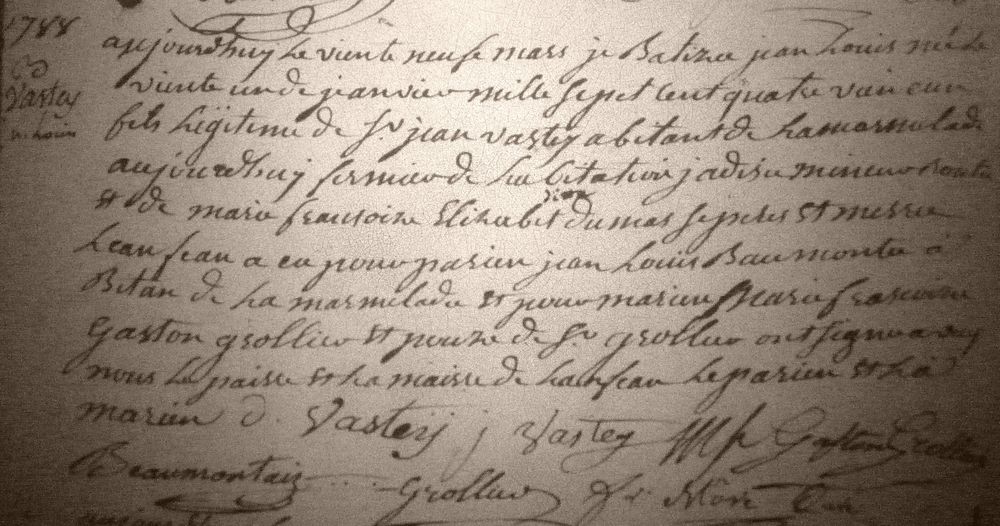 1788
Vastey
aujourdhuy le vinte neufe mars je Batize jean Louis né le
vinte un de janvier mille sepet cent quatre vein
fils légitime de Sr jean vastey abitant de La marmelade
aujourdhuy fermier de La bitation jadis mineur
et de marie fransoize Elizabet dumas et merre
Lean fean a eu pour parien jean Louis Baumonte a
Bitan de La marmelade et pour marien Marie fransoize
Gaston grollier et pouze de Sr grollier ont signe avey
nous Le paire et La maire de Lanfean Le parien et La
marien d. Vasteÿ j Vastey Gaston Grollier
Beaumontaiz Grollier